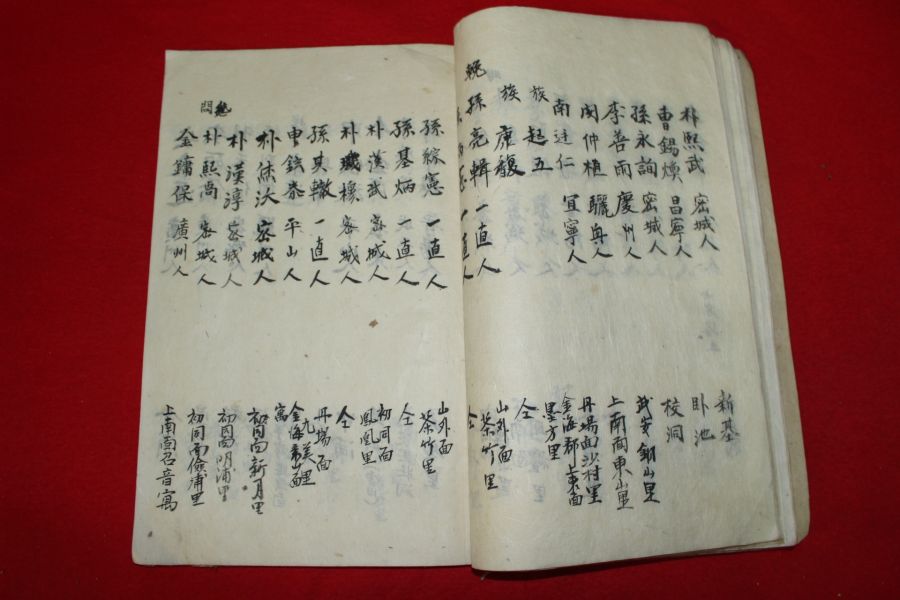 朴熙武 密城人 新基
曹錫煥 昌寧人 卧池
孫永詢 密城人 校洞
李善雨 慶州人 武安 山里
閔仲植 驪興人 上南面東山里
南廷仁 宜寧人 丹場面沙村里
族 起五 金海郡 上東面
族 慶馥 墨方里
輓
孫亮輯 一直人 仝
一直人 山外面
茶竹里
孫綵憲 一直人 仝
孫基炳 一直人 山外面
茶竹里
朴漢武 密城人 仝
朴璣穆 密城人 初同面
鳳凰里
孫其轍 一直人 仝
申鉉泰 平山人 丹場面
九美里
朴 汏 密城人 金海 面
寓
朴漢淳 密城人 初同面新月里
慰
問
朴熙尚 密城人 初同面明浦里
金鏞保 廣州人 初同面儉浦里
上南面召音寓